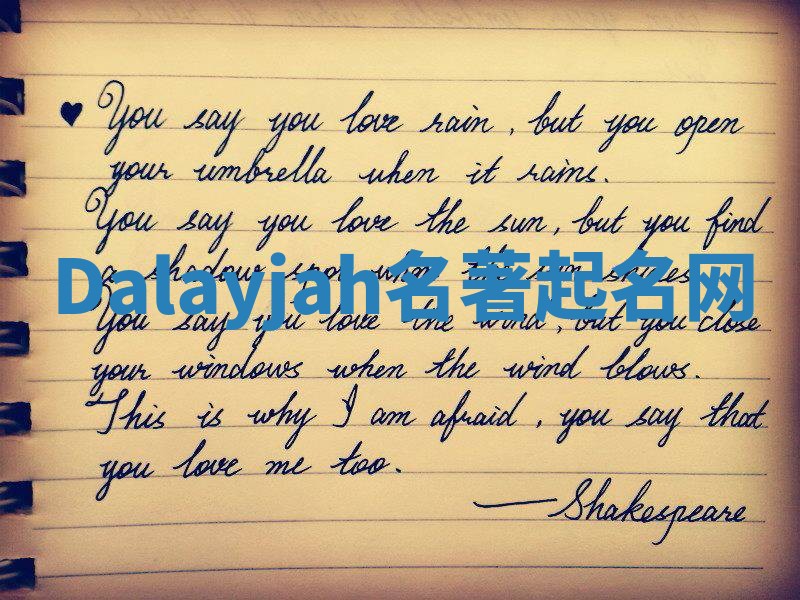 ♥ You say you love rain, but you open
your umbrella when it rains.
You say you love the sun, but you find
a shadow spot when the sun shines.
Dalayjah名著起名网
You say you love the wind, but you close
your windows when the wind blows.
This is why I am afraid, you say that
you love me too.
—Shakespeare